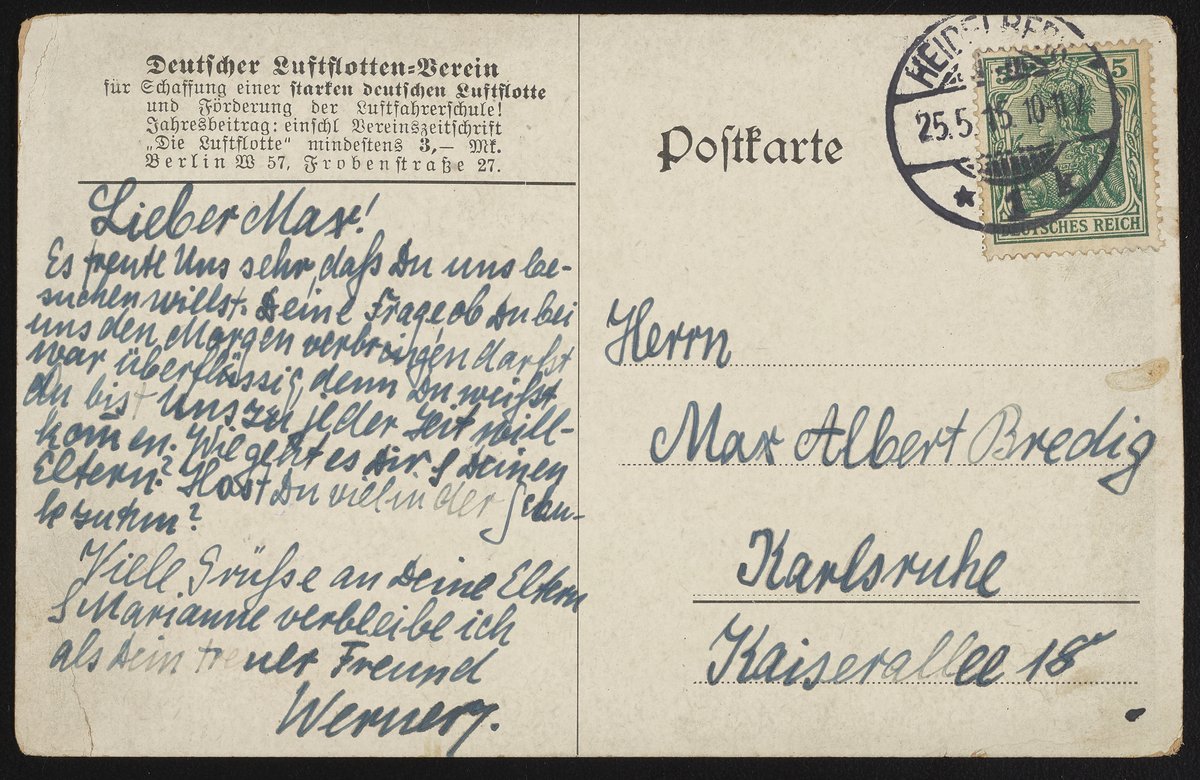 Deutscher Luftflotten-Verein
für Schaffung einer starken deutschen Luftflotte
und Förderung der Luftfahrerschule!
Jahresbeitrag: einschl Vereinszeitschrift
„Die Luftflotte“ mindestens 3,— Mk.
Berlin W 57, Frobenstraße 27.
Lieber Max!
Es freute Uns sehr, daß Du uns be-
suchen willst. Deine Frage, ob Du bei
uns den Morgen verbringen darfst
war überflüssig, denn Du weißt
du bist Uns zu jeder Zeit will-
kom̄en. Wie geht es Dir & Deinen
Eltern? Hast Du viel in der
zu
Viele Grüße an Deine Eltern
& Marianne verbleibe ich
als Dein treuer Freund
Werner
Postkarte
HEIDELBERG
25.5.
* 1 k
5
DEUTSCHES REICH
Herrn
Max Albert Bredig
Karlsruhe
Kaiserallee 18